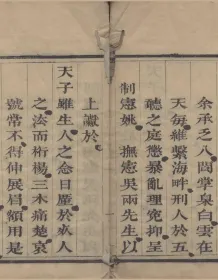 余承乏八閩掌臬白雲在
天每維繫海畔刑人於五
聽之庭懲暴亂理冤抑呈
制憲姚 撫憲吳兩先生以
上讞於
天子雖生人之念日廑於人
之法而桁楊三木痛楚哀
號常不得伸展眉額用是